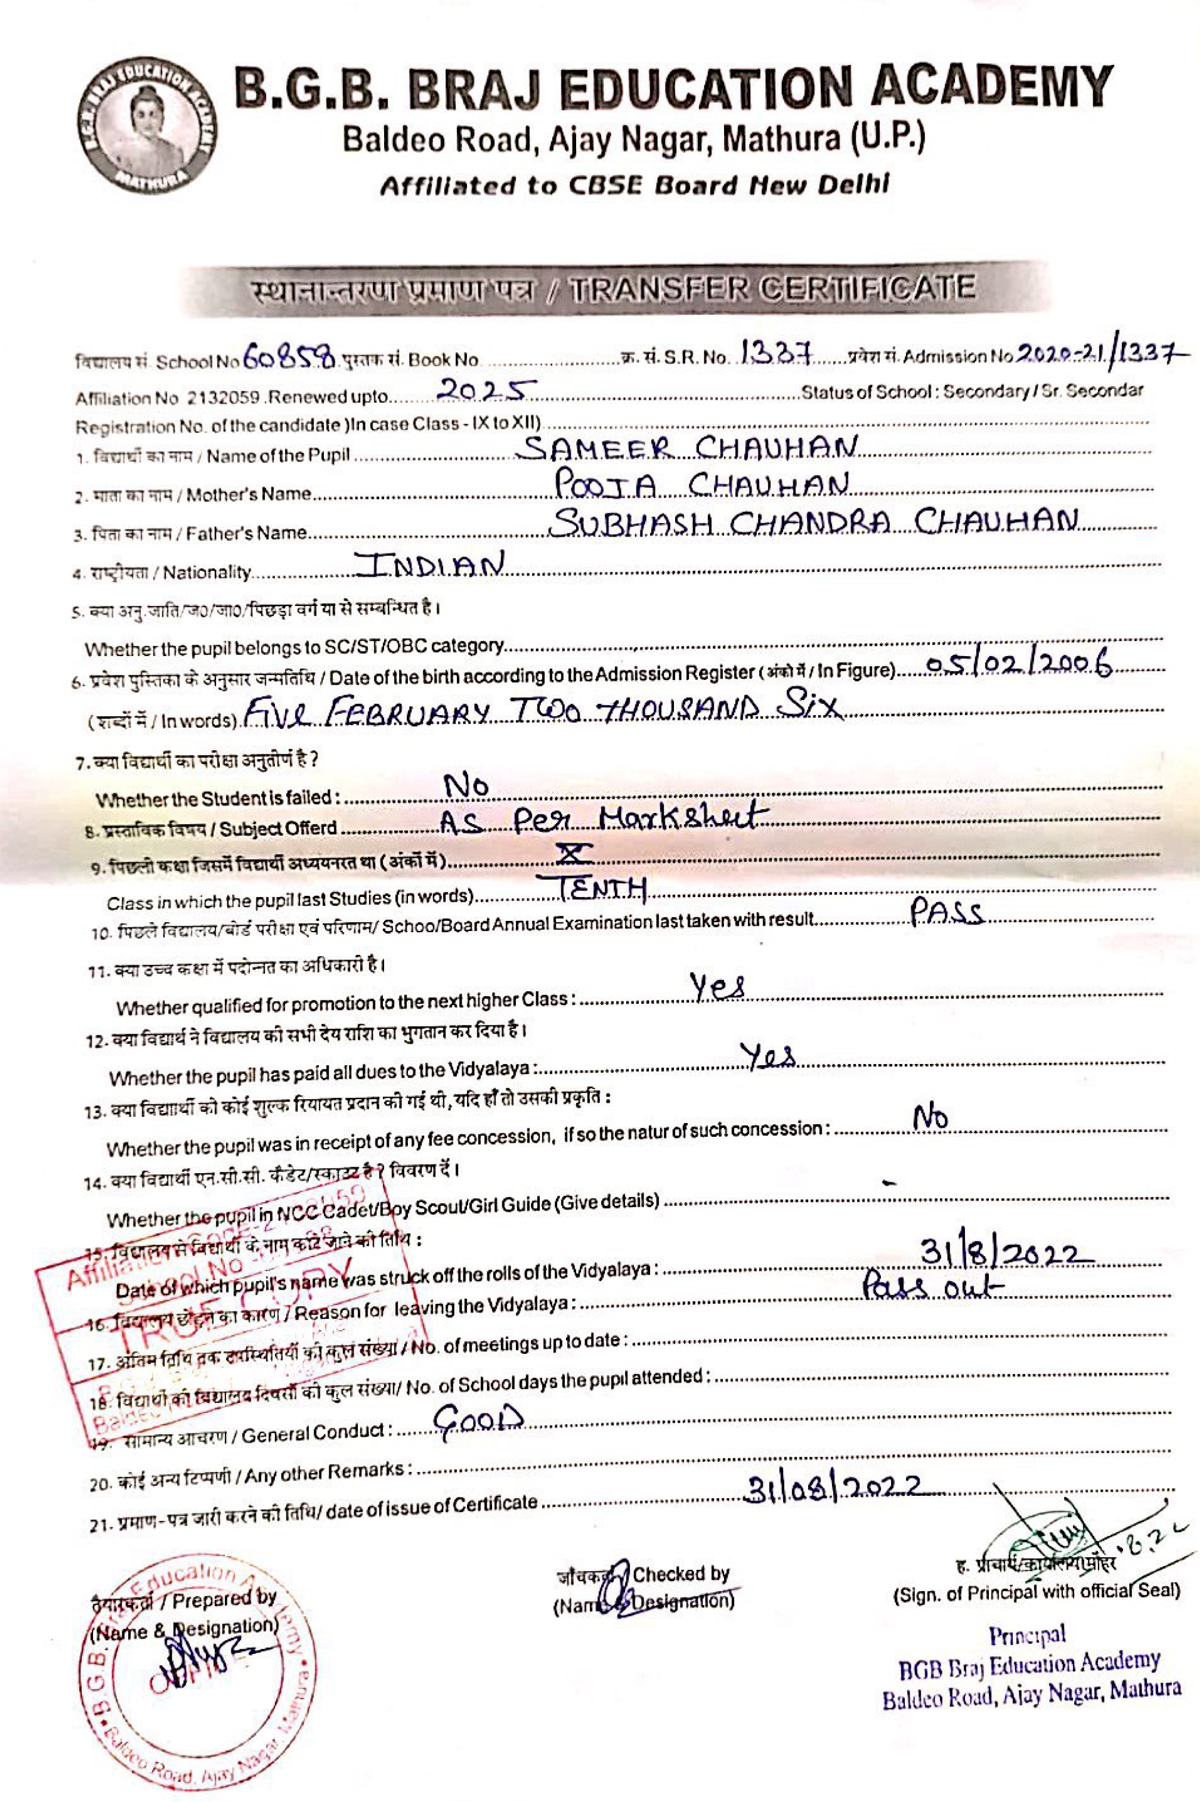 B.G.B. BRAJ EDUCATION ACADEMY
MATHURA
B.G.B. BRAJ EDUCATION ACADEMY
Baldeo Road, Ajay Nagar, Mathura (U.P.)
Affiliated to CBSE Board New Delhi
स्थानान्तरण प्रमाण पत्र / TRANSFER CERTIFICATE
विद्यालय सं. School No 60858 पुस्तक सं. Book No. क्र. सं. S.R. No. 1337 प्रवेश सं. Admission No 2020-21/1337
Affiliation No 2132059 .Renewed upto 2025 Status of School : Secondary / Sr. Secondar
Registration No. of the candidate )In case Class - IX to XII)
1. विद्यार्थी का नाम / Name of the Pupil SAMEER CHAUHAN
2. माता का नाम / Mother's Name POOJA CHAUHAN
3. पिता का नाम / Father's Name SUBHASH CHANDRA CHAUHAN
4. राष्ट्रीयता / Nationality INDIAN
5. क्या अनु.जाति/ज०/जा०/पिछड़ा वर्ग या से सम्बन्धित है।
Whether the pupil belongs to SC/ST/OBC category
6. प्रवेश पुस्तिका के अनुसार जन्मतिथि / Date of the birth according to the Admission Register (अंको में / In Figure) 05/02/2006
(शब्दों में / In words) Five FEBRUARY TWO THOUSAND Six
7. क्या विद्यार्थी का परीक्षा अनुतीर्ण है ?
Whether the Student is failed : No
8. प्रस्ताविक विषय / Subject Offerd As Per Marksheet
9. पिछली कक्षा जिसमें विद्यार्थी अध्ययनरत था (अंकों में) X
Class in which the pupil last Studies (in words) TENTH
10. पिछले विद्यालय/बोर्ड परीक्षा एवं परिणाम/ Schoo/Board Annual Examination last taken with result PASS
11. क्या उच्च कक्षा में पदोन्नत का अधिकारी है।
Whether qualified for promotion to the next higher Class : Yes
12. क्या विद्यार्थ ने विद्यालय की सभी देय राशि का भुगतान कर दिया है।
Whether the pupil has paid all dues to the Vidyalaya : Yes
13. क्या विद्यार्थी को कोई शुल्क रियायत प्रदान की गई थी, यदि हाँ तो उसकी प्रकृति :
Whether the pupil was in receipt of any fee concession, if so the natur of such concession : No
14. क्या विद्यार्थी एन.सी.सी. कैडेट/स्काउट है ? विवरण दें।
Whether the pupil in NCC Cadet/Boy Scout/Girl Guide (Give details) -
15. विद्यालय से विद्यार्थी के नाम काटे जाने की तिथि :
Date of which pupil's name was struck off the rolls of the Vidyalaya : 31/8/2022
16. विद्यालय छोड़ने का कारण / Reason for leaving the Vidyalaya : Pass out
17. अंतिम तिथि तक उपस्थितियों की कुल संख्या / No. of meetings up to date :
18. विद्यार्थी की विद्यालय दिवसों की कुल संख्या/ No. of School days the pupil attended :
19. सामान्य आचरण / General Conduct : GOOD
20. कोई अन्य टिप्पणी / Any other Remarks :
21. प्रमाण-पत्र जारी करने की तिथि/ date of issue of Certificate 31/08/2022
Affiliation Code-
School No
TRUE COPY
Baldeo
तैयारकर्ता / Prepared by
(Name & Designation)
B.G.B. Braj Education Academy
OFFICE
Baldeo Road, Ajay Nagar, Mathura
जाँचकर्ता Checked by
(Name & Designation)
ह. प्राचार्य/कार्यालय/मोहर
(Sign. of Principal with official Seal)
Principal
BGB Braj Education Academy
Baldeo Road, Ajay Nagar, Mathura